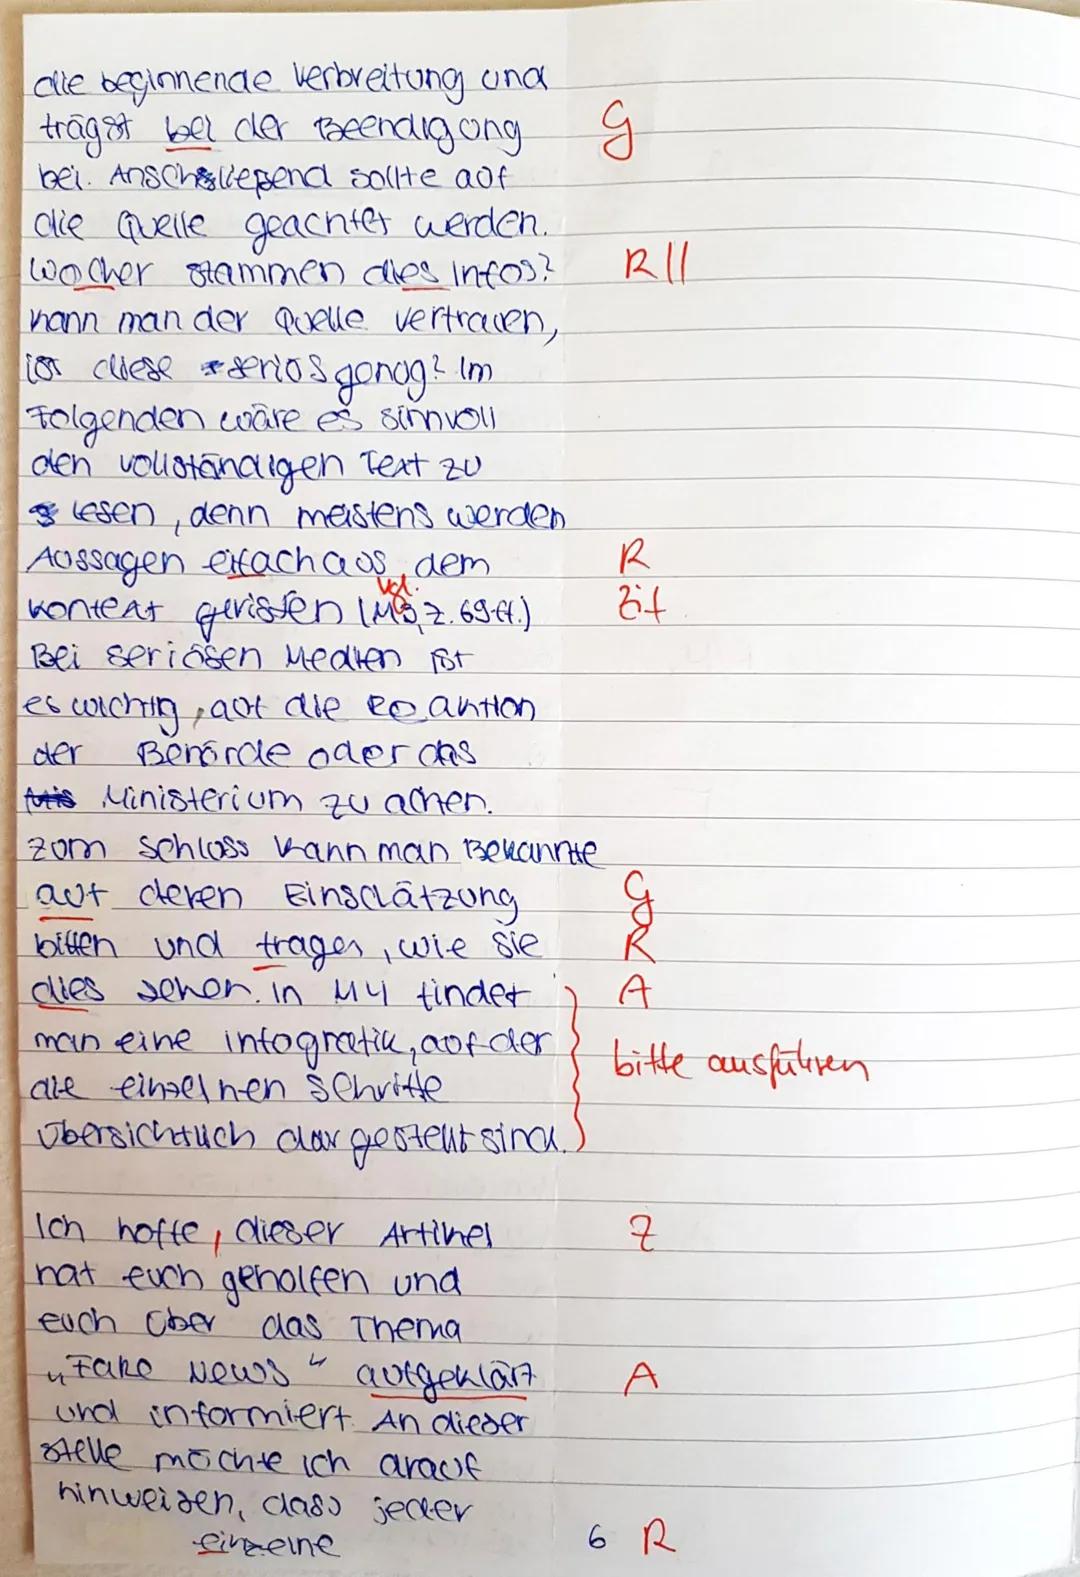 die beginnende Verbreitung und
trägst bei der Beendigung G
bei. Anschließend sollte auf
die Quelle geachtet werden.
Wocher stammen dies Infos? R||
kann man der Quelle vertrauen,
ist diese seriös genug? Im
Folgenden wäre es sinnvoll
den vollständigen Text zu
lesen, denn meistens werden
Aussagen eifach aus dem R
Kontext gerissen (vgl. M3, Z. 69ff.) Zit.
Bei seriösen Medien ist
es wichtig, auf die Reaktion
der Behörde oder das
Ministerium zu achen.
Zum Schluss kann man Bekannte
auf deren Einschätzung G
bitten und tragen, wie sie R
dies sehen. In M4 findet A
man eine Infografik, auf der bitte ausführen
die einzelnen Schritte
übersichtlich dargestellt sind.
Ich hoffe, dieser Artikel Z
hat euch geholfen und
euch über das Thema
„Fake News" aufgeklärt A
und informiert. An dieser
Stelle möchte ich darauf
hinweisen, dass jeder
einzelne 6 R